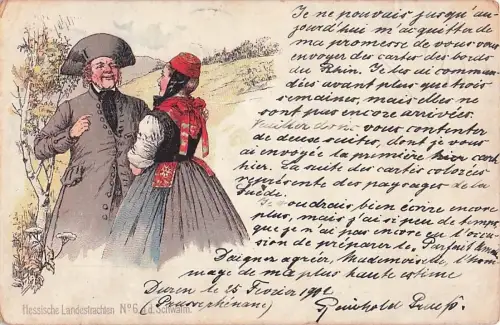 Je ne pouvais jusqu'au-
jourd'hui m'acquitter de
ma promesse de vous vous
envoyer des cartes des bords
du Rhin. Je les ai comman-
dées avant plus que trois
semaines, mais elles ne
sont pas encore arrivées.
vous contenter
de deux suites, dont je vous
ai envoyé la première hier
hier. La suite des cartes colorées
représente des paysages de la
Suède.
Je voudrais bien écrire encore
plus, mais j'ai si peu de temps
que je n'ai pas encore eu l'occa-
sion de préparer le
Daignez agréer, Mademoiselle, l'hom-
mage de ma plus haute estime
Düren le 25 Février 1902
Reinhold
Hessische Landestrachten No 6. a. d. Schwalm.